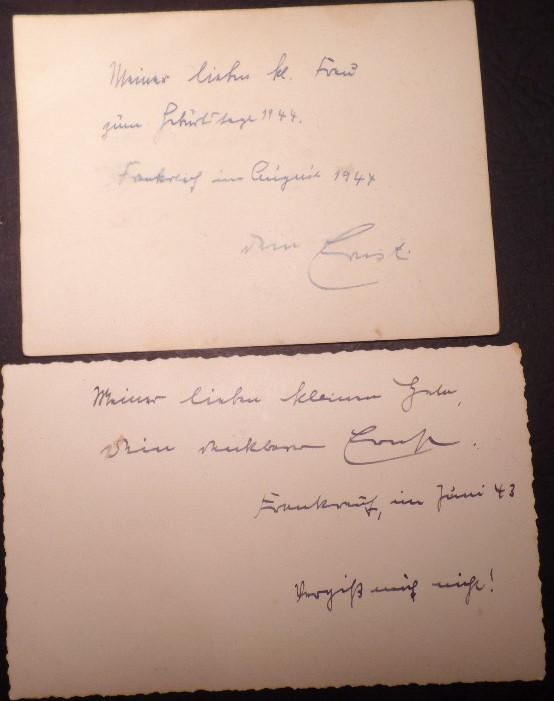 Meiner lieben kl. Frau
zum Geburtstage 1944.
Frankreich im August 1944
Dein Ernst.
Meiner lieben kleinen
Dein dankbarer Ernst.
Frankreich, im Juni 43
Vergiß mich nicht!